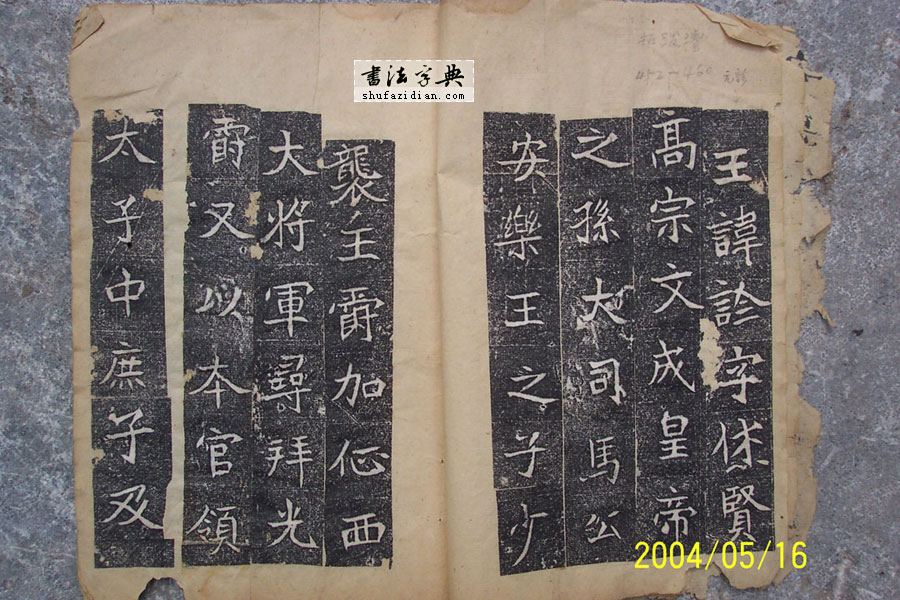 書法字典
shufazidian.com
452-460
王諱詮字休賢
高宗文成皇帝
之孫大司馬公
安樂王之子少
襲王爵加征西
大將軍尋拜光
爵又以本官領
太子中庶子及
2004/05/16